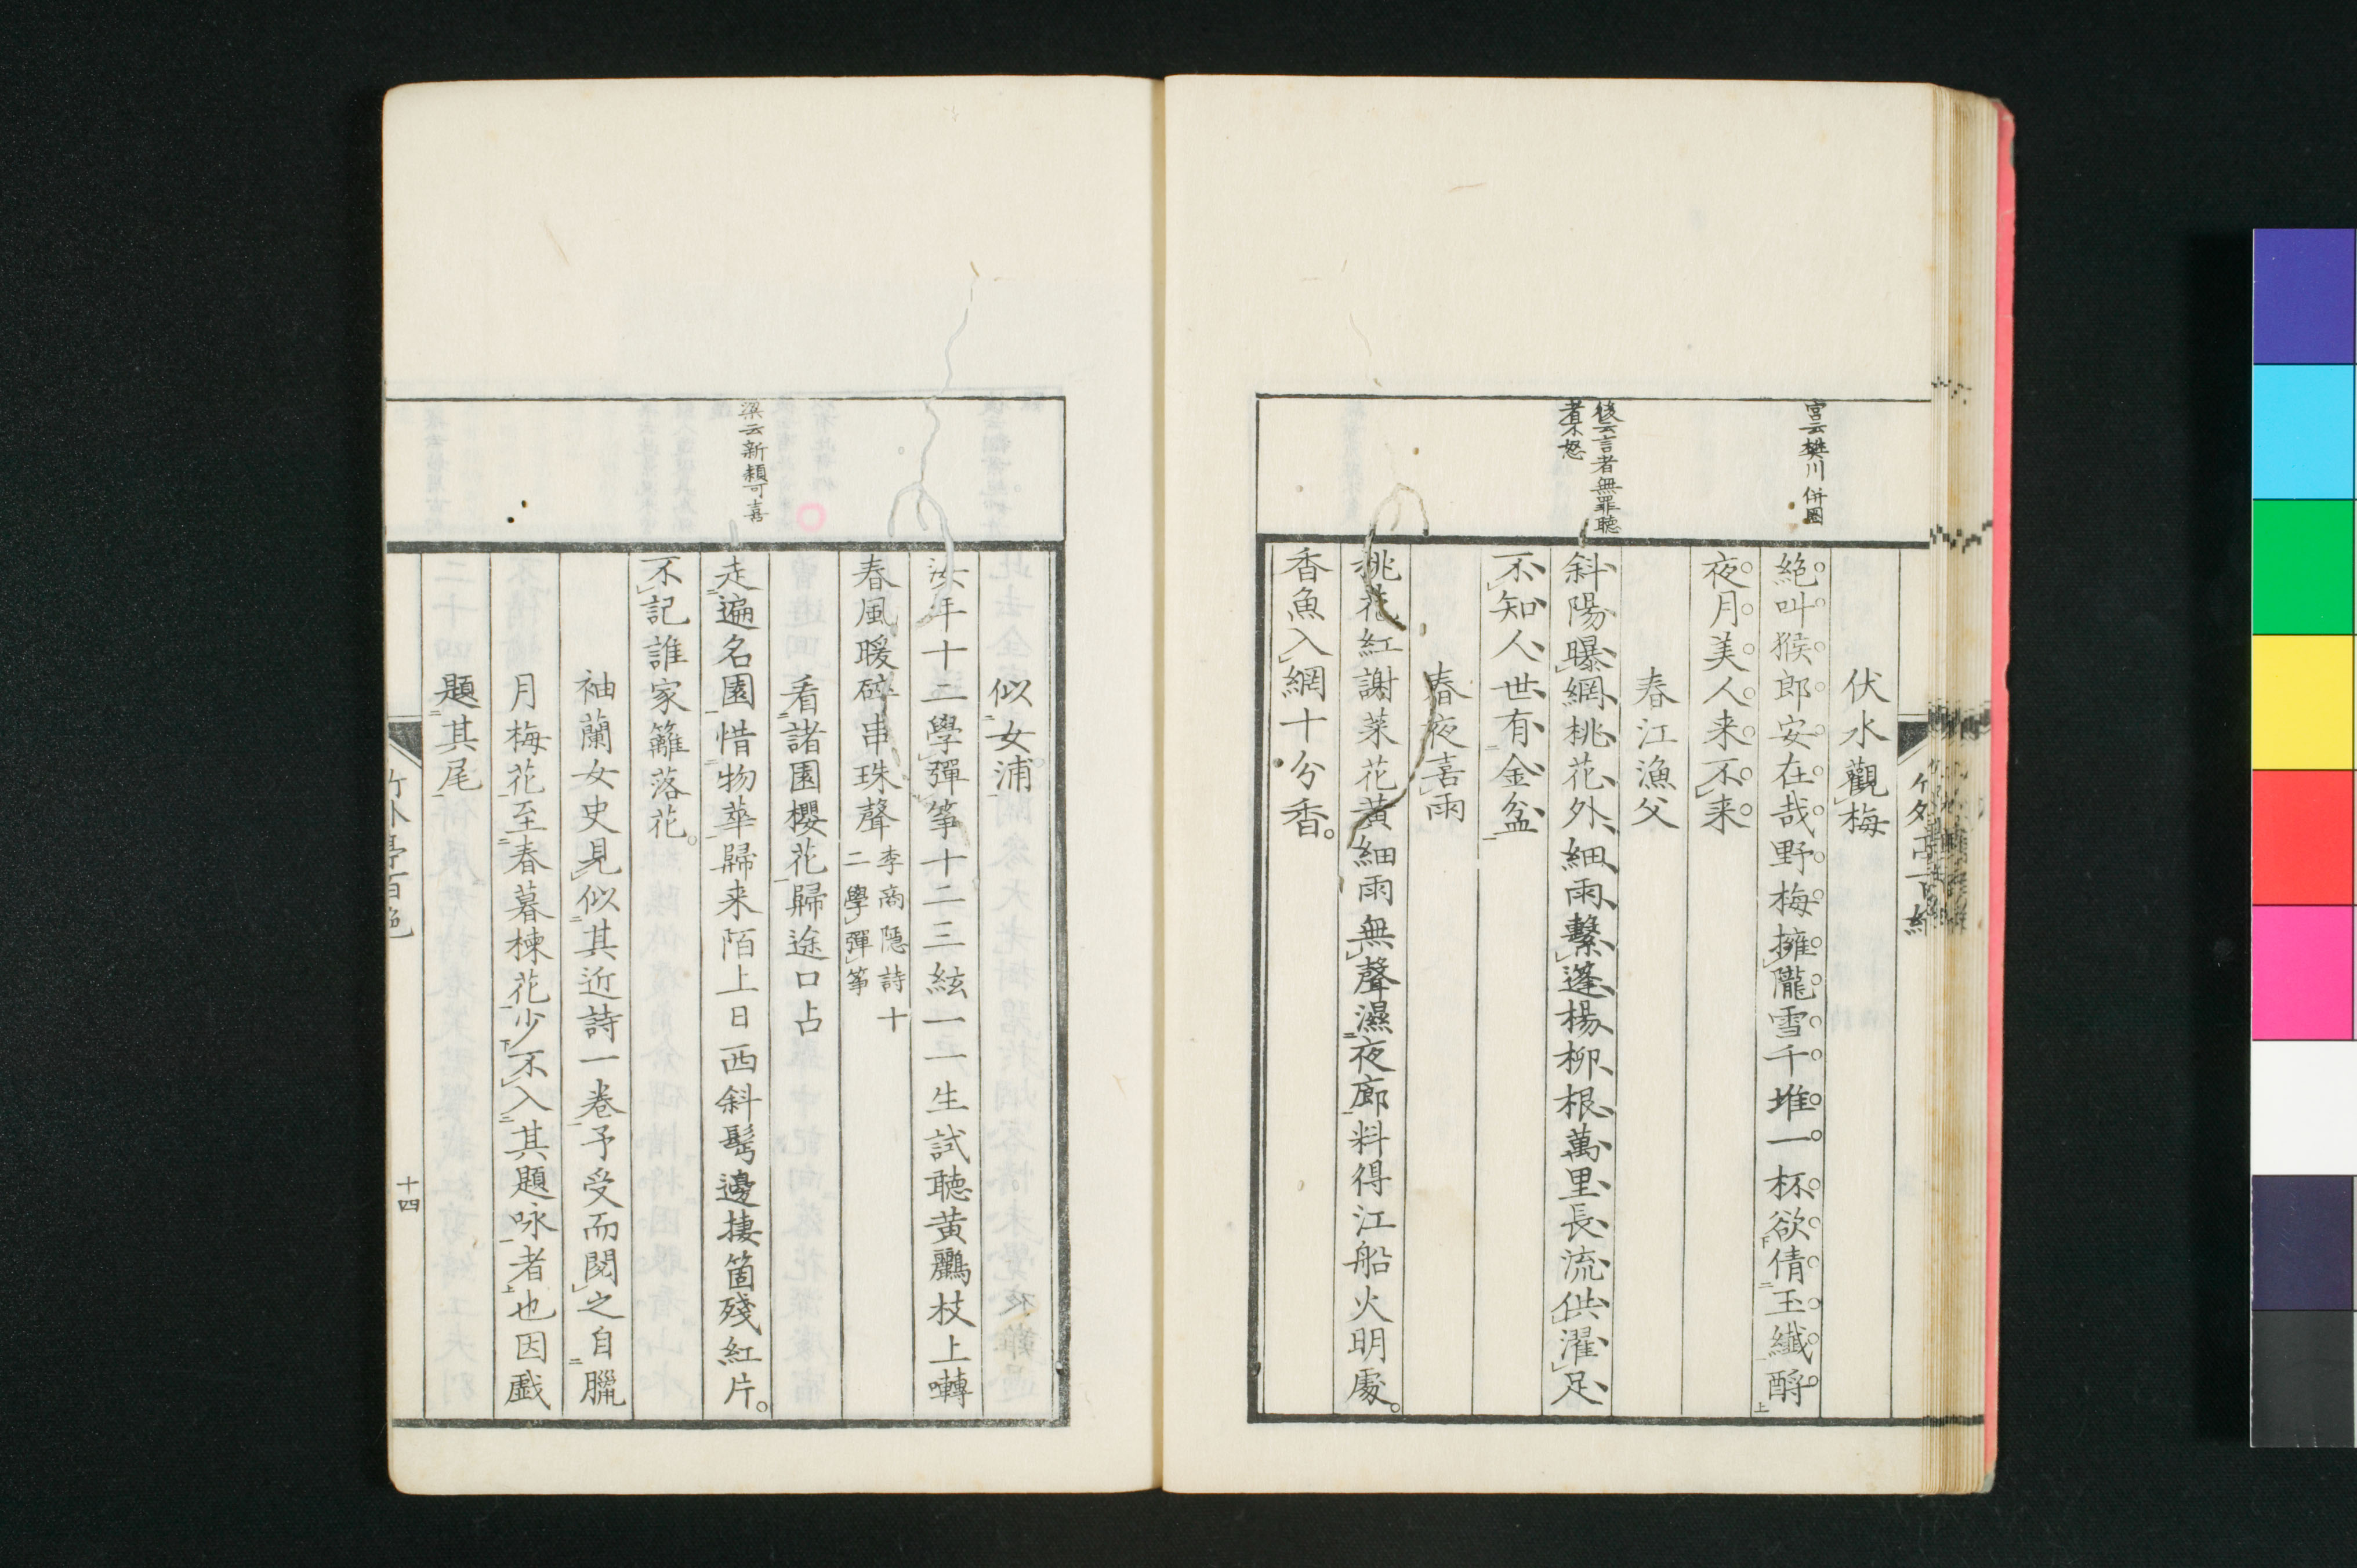 宮云樊川併圏
後云言者無罪聴
者不怒
伏水觀梅
絕叫猴郎安在哉野梅擁隴雪千堆一杯欲倩玉纖酹
夜月美人来不来
春江漁父
斜陽曝網桃花外細雨繫蓬楊柳根萬里長流供濯足
不知人世有金盆
春夜喜雨
桃花紅謝菜花黃細雨無聲濕夜廊料得江船火明處
香魚入網十分香
梁云新穎可喜
似女浦
汝年十二學彈箏十二三絃一一生試聴黄鸝枝上囀
春風暖碎串珠聲
李商隱詩十
二學彈箏
看諸園櫻花歸途口占
走遍名園惜物華歸来陌上日西斜髩邊摟箇殘紅片
不記誰家籬落花
袖蘭女史見似其近詩一卷予受而閲之自臘
月梅花至春暮楝花少不入其題咏者也因戯
題其尾
竹外亭百絶
十四